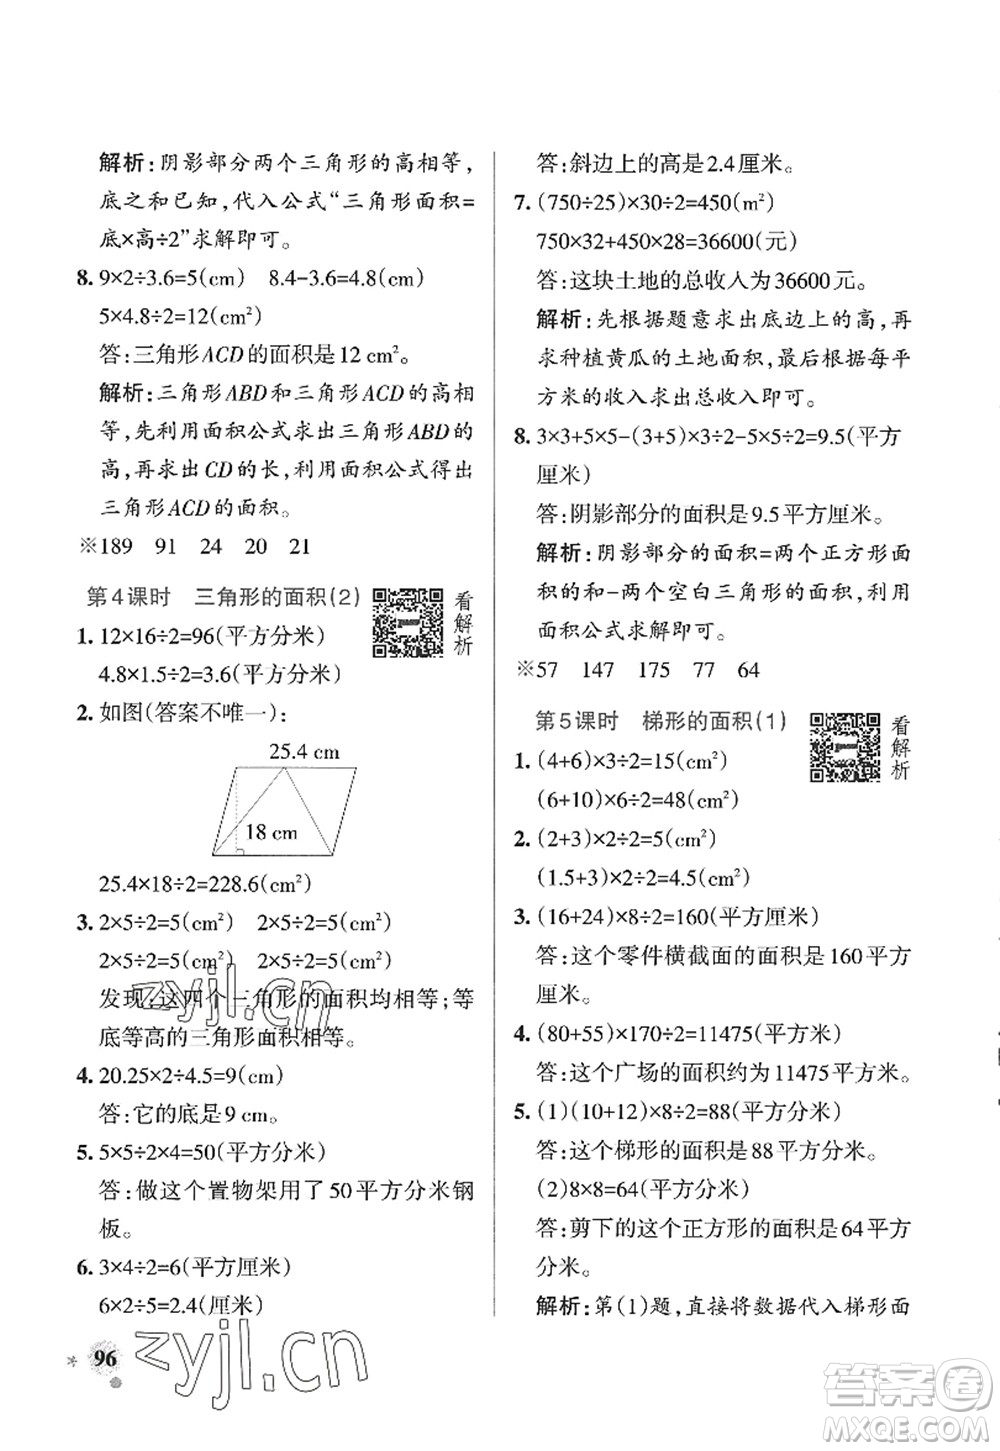 解析:阴影部分两个三角形的高相等,
底之和已知,代入公式“三角形面积=
底×高÷2”求解即可。
8. 9×2÷3.6=5(cm) 8.4-3.6=4.8(cm)
5×4.8÷2=12(cm²)
答:三角形ACD的面积是12 cm²。
解析:三角形ABD和三角形ACD的高相
等,先利用面积公式求出三角形ABD的
高,再求出CD的长,利用面积公式得出
三角形ACD的面积。
※189 91 24 20 21
第4课时 三角形的面积(2)
看解析
1. 12×16÷2=96(平方分米)
4.8×1.5÷2=3.6(平方分米)
2. 如图(答案不唯一):
25.4 cm
18 cm
25.4×18÷2=228.6(cm²)
3. 2×5÷2=5(cm²) 2×5÷2=5(cm²)
2×5÷2=5(cm²) 2×5÷2=5(cm²)
发现:这四个三角形的面积均相等;等
底等高的三角形面积相等。
4. 20.25×2÷4.5=9(cm)
答:它的底是9 cm。
5. 5×5÷2×4=50(平方分米)
答:做这个置物架用了50平方分米钢
板。
6. 3×4÷2=6(平方厘米)
6×2÷5=2.4(厘米)
96
答:斜边上的高是2.4厘米。
7. (750÷25)×30÷2=450(m²)
750×32+450×28=36600(元)
答:这块土地的总收入为36600元。
解析:先根据题意求出底边上的高,再
求种植黄瓜的土地面积,最后根据每平
方米的收入求出总收入即可。
8. 3×3+5×5-(3+5)×3÷2-5×5÷2=9.5(平方
厘米)
答:阴影部分的面积是9.5平方厘米。
解析:阴影部分的面积=两个正方形面
积的和-两个空白三角形的面积,利用
面积公式求解即可。
※57 147 175 77 64
第5课时 梯形的面积(1)
看解析
1. (4+6)×3÷2=15(cm²)
(6+10)×6÷2=48(cm²)
2. (2+3)×2÷2=5(cm²)
(1.5+3)×2÷2=4.5(cm²)
3. (16+24)×8÷2=160(平方厘米)
答:这个零件横截面的面积是160平方
厘米。
4. (80+55)×170÷2=11475(平方米)
答:这个广场的面积约为11475平方米。
5. (1)(10+12)×8÷2=88(平方分米)
答:这个梯形的面积是88平方分米。
(2)8×8=64(平方分米)
答:剪下的这个正方形的面积是64平方
分米。
解析:第(1)题,直接将数据代入梯形面
zyjl.cn
zyjl.cn
答案圈
MXQE.COM